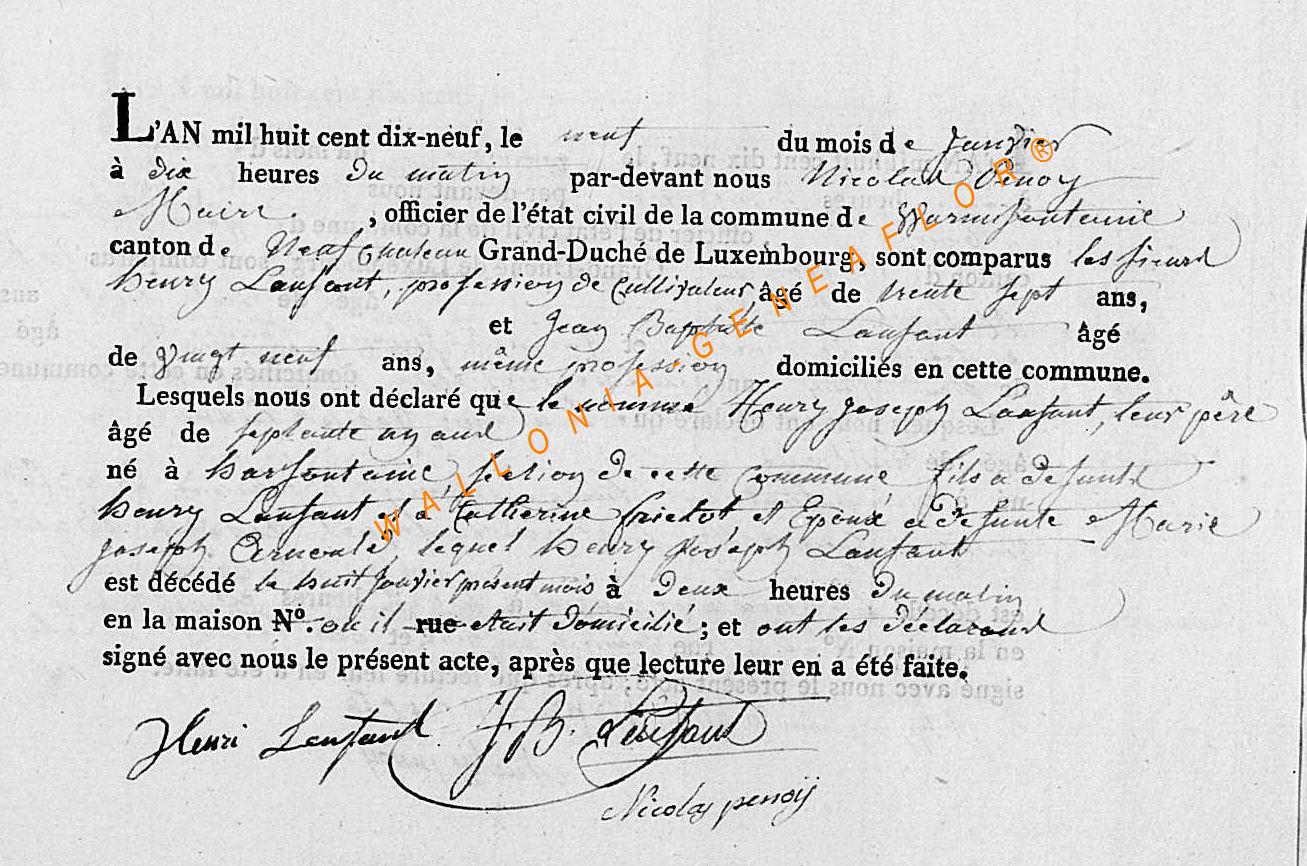 L'AN mil huit cent dix-neuf, le neuf du mois de Janvier
à dix heures du matin par-devant nous Nicolas Penoy
Maire, officier de l'état civil de la commune de Warmifontaine
canton de Neufchateau Grand-Duché de Luxembourg, sont comparus les sieurs
henry Lanfant, profession de Cultivateur, âgé de trente sept ans,
et Jean Baptiste Lanfant âgé
de Vingt neuf ans, même profession domiciliés en cette commune.
Lesquels nous ont déclaré que le nommé Henry joseph Lanfant, leur père
âgé de septante un ans
né à harfontaine, section de cette Commune fils a defunts
henry Lanfant et à Catherine et Epoux a defunte Marie
joseph lequel henry joseph Lanfant
est décédé le huit janvier présent mois à Deux heures Du matin
en la maison N°. ou il rue etait domicilié; et ont les déclarans
signé avec nous le présent acte, après que lecture leur en a été faite.
Henri Lenfant J B. Lenfant
Nicolas penoÿ
WALLONIA-GENEAFLOR®